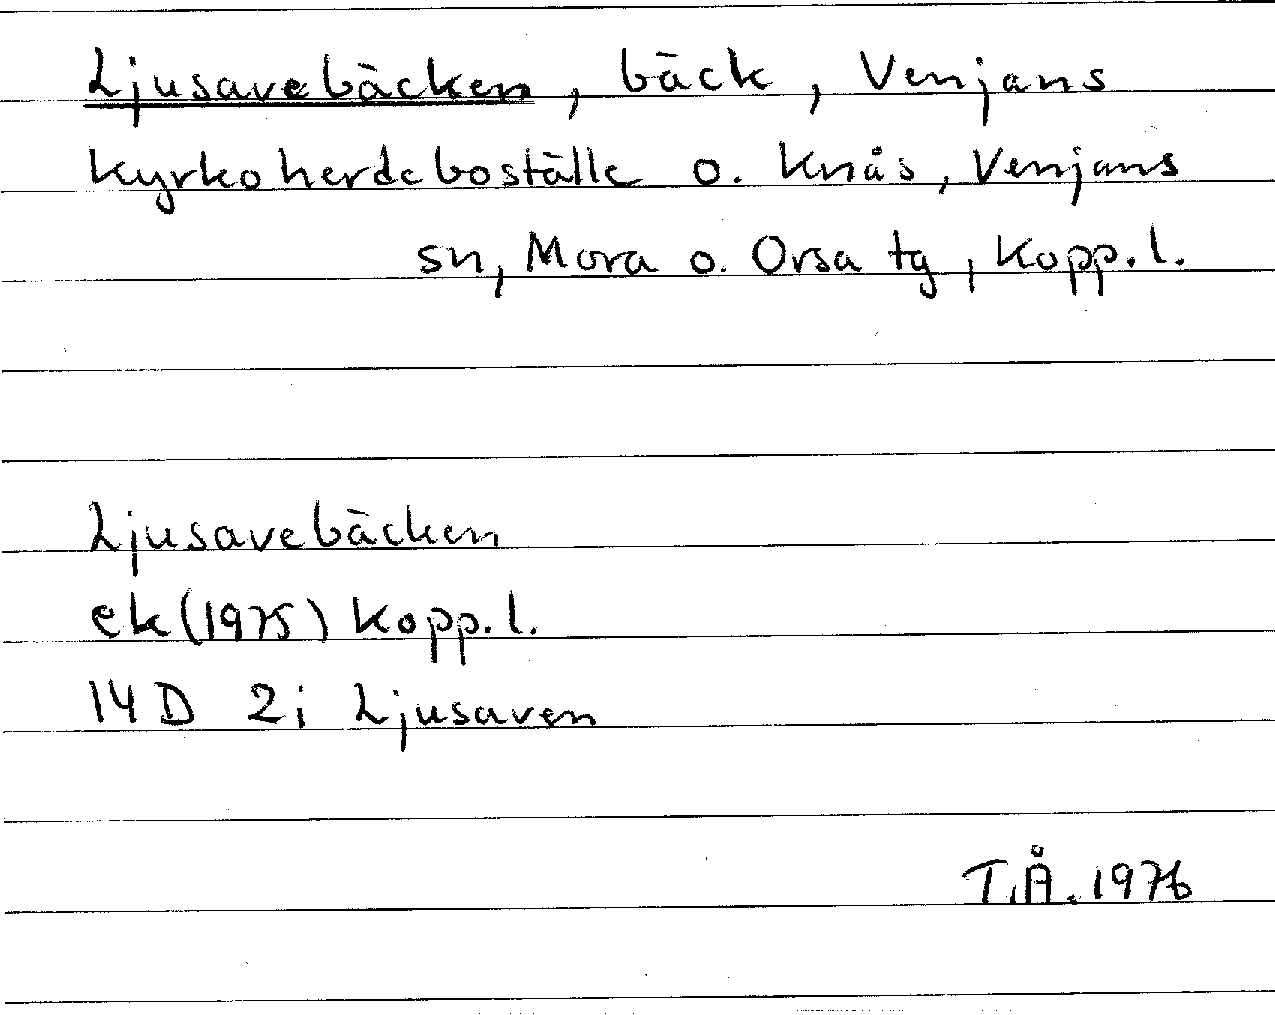 Ljusavebäcken, bäck, Venjans
kyrkoherdeboställe o. Knås, Venjans
sn, Mora o. Orsa tg, Kopp.l.
Ljusavebäcken
ek(1975) Kopp.l.
14D 2i Ljusaven
T.Å. 1976